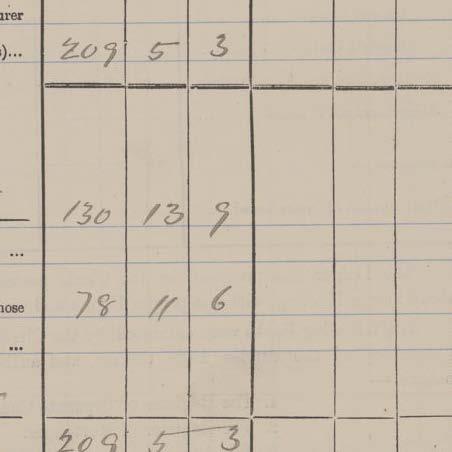 urer
s)... 209 5 3
130 13 9
...
hose 78 11 6
...
209 5 3